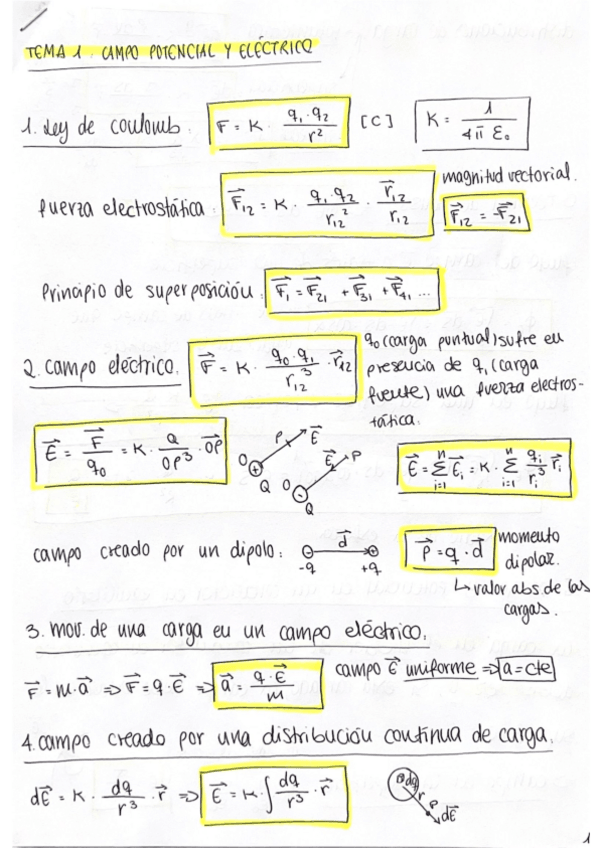 TEMA 1. CAMPO POTENCIAL Y ELÉCTRICO
1. Ley de coulomb. F = K · q₁·q₂/r² [C] K = 1/4π ε₀
magnitud vectorial.
fuerza electrostática: F⃗₁₂ = K · q₁·q₂/r₁₂² · r⃗₁₂/r₁₂ F⃗₁₂ = -F⃗₂₁
Principio de superposición: F⃗₁ = F⃗₂₁ + F⃗₃₁ + F⃗₄₁ ...
2. Campo eléctrico. F⃗ = K · q₀·q₁/r₁₂³ · r⃗₁₂
q₀ (carga puntual) sufre en
presencia de q₁ (carga
fuente) una fuerza electros-
tática.
E⃗ = F⃗/q₀ = K · Q/OP³ · OP⃗
P E⃗ O Q
E⃗ P O Q
E⃗ = Σⁿᵢ₌₁ E⃗ᵢ = K · Σⁿᵢ₌₁ qᵢ/rᵢ³ r⃗ᵢ
campo creado por un dipolo: -q d⃗ +q p⃗ = q · d⃗ momento
dipolar.
↳ valor abs. de las
cargas.
3. mov. de una carga en un campo eléctrico.
F⃗ = m·a⃗ ⇒ F⃗ = q·E⃗ ⇒ a⃗ = q·E⃗/m campo E⃗ uniforme ⇒ a = cte
4. campo creado por una distribución continua de carga.
dE⃗ = K · dq/r³ · r⃗ ⇒ E⃗ = K · ∫ dq/r³ · r⃗
dq r P dE⃗
1